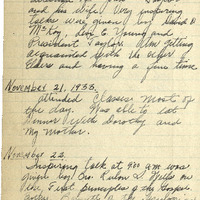 and his wife Very inspiring
talks were given by David O
McKay, Levi E Young and
President Taylor. Am getting
acquainted with the other
Elders and having a fine time
NOVEMBER 21, 1933.
Attended Classes most of
the day. Was able to eat
Dinner with Dorothy and
My mother.
NOVEMBER 22.
Inspiring talk at 8:00 am was
given by Bro.
the First principles of the Gospel.